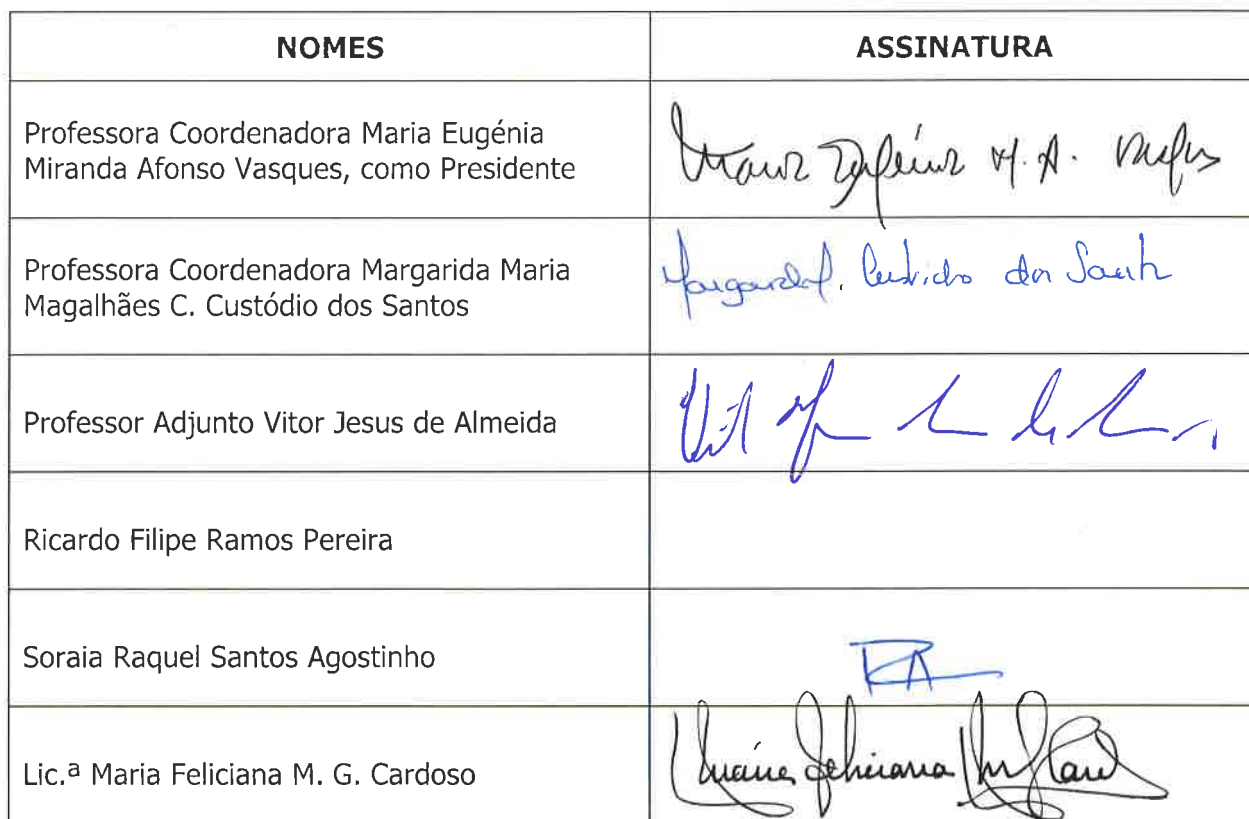 NOMES
ASSINATURA
Professora Coordenadora Maria Eugénia
Miranda Afonso Vasques, como Presidente
Maria Eugénia M. A. Vasques
Professora Coordenadora Margarida Maria
Magalhães C. Custódio dos Santos
Custódio dos Santos
Professor Adjunto Vitor Jesus de Almeida
Ricardo Filipe Ramos Pereira
Soraia Raquel Santos Agostinho
RA
Lic.ª Maria Feliciana M. G. Cardoso
Maria Feliciana